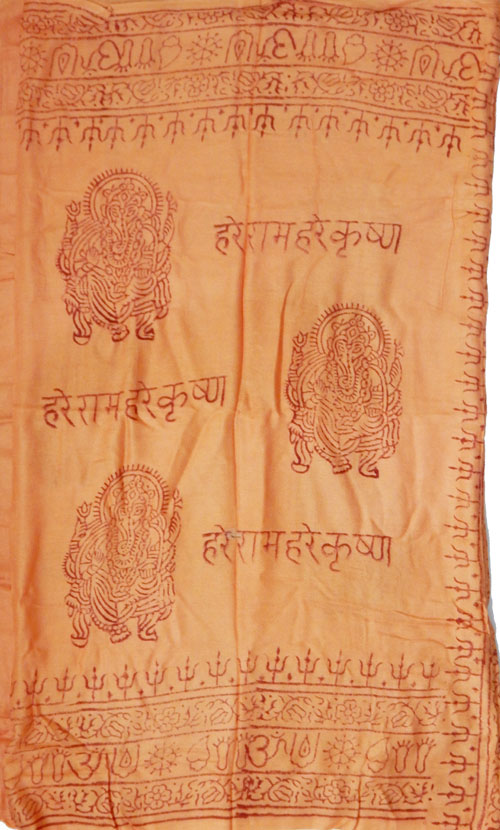 हरेरामहरेकृष्ण
हरेरामहरेकृष्ण
हरेरामहरेकृष्ण
ॐ